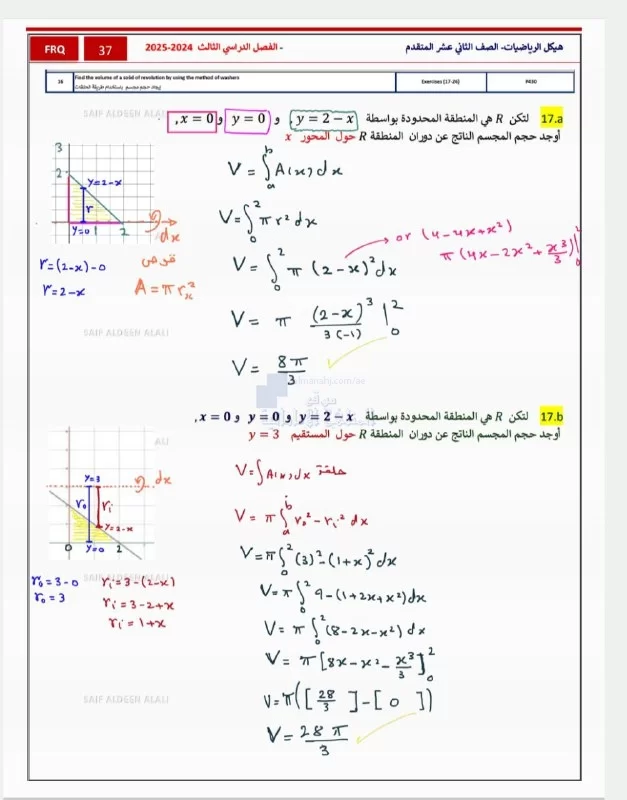 FRQ 37 2025-2024 الفصل الدراسي الثالث - هيكل الرياضيات- الصف الثاني عشر المتقدم
16 Find the volume of a solid of revolution by using the method of washers Exercises (17-26) P430
إيجاد حجم مجسم باستخدام طريقة الحلقات
SAIF ALDEEN ALALI
17.a لتكن R هي المنطقة المحدودة بواسطة y = 2 − x و y = 0 و x = 0,
أوجد حجم المجسم الناتج عن دوران المنطقة R حول المحور x
3
2
y=2-x
r
y=0 1 2
dx
r=(2-x)-0
r=2-x
قرص
A = πr²ₓ
V = ∫ₐᵇ A(x) dx
V = ∫₀² π r² dx
V = ∫₀² π (2-x)² dx
or (4-4x+x²)
π(4x-2x²+x³/3)|₀²
V = π (2-x)³/3(-1) |₀²
V = 8π/3
SAIF ALDEEN ALALI
almanahj.com/ae
موقع
المناهج الإماراتية
17.b لتكن R هي المنطقة المحدودة بواسطة y = 2 − x و y = 0 و x = 0,
أوجد حجم المجسم الناتج عن دوران المنطقة R حول المستقيم y = 3
ALI
y=3
dx
r₀
rᵢ
y=2-x
0 y=0 2
r₀=3-0
r₀=3
SAIF ALDEEN ALALI
rᵢ=3-(2-x)
rᵢ=3-2+x
rᵢ=1+x
V=∫A(x)dx حلقة
V = π ∫ₐᵇ r₀² - rᵢ² dx
V=π∫₀² (3)²-(1+x)² dx
V=π∫₀² 9-(1+2x+x²)dx
V = π ∫₀² (8-2x-x²) dx
V = π [8x-x²-x³/3]₀²
V=π([28/3]-[0])
V = 28π/3
SAIF ALDEEN ALALI